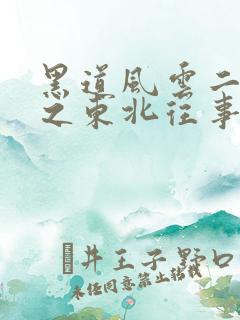 黑道風雲二
之東北往事
井王子野口
未经同意禁止转载